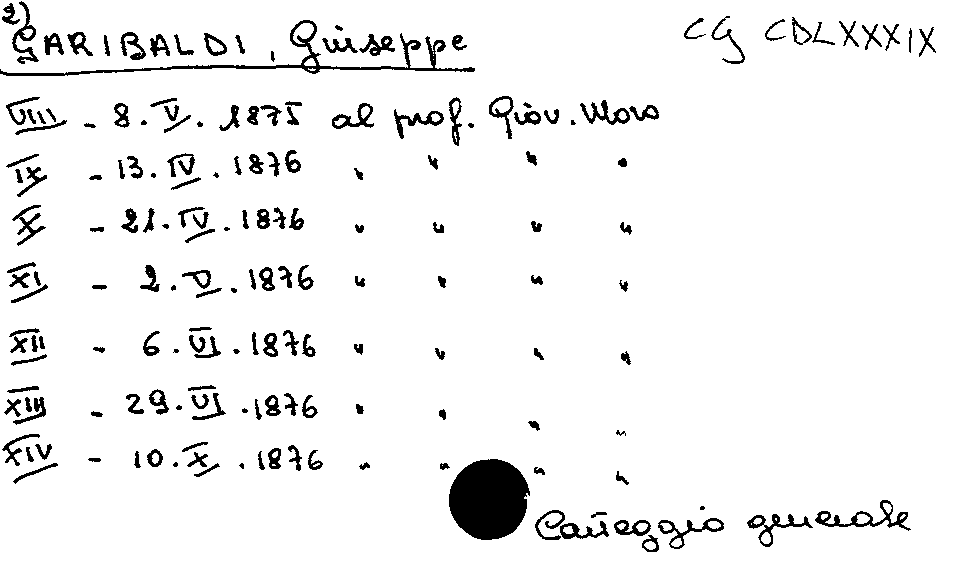 2)
GARIBALDI, Giuseppe
CG CDLXXXIX
VIII - 8. V. 1875 al prof. Giov. Moro
IX - 13. IV. 1876 " " " "
X - 21. IV. 1876 " " " "
XI - 2. V. 1876 " " " "
XII - 6. VI. 1876 " " " "
XIII - 29. VI. 1876 " " " "
XIV - 10. X. 1876 " " " "
Carteggio generale